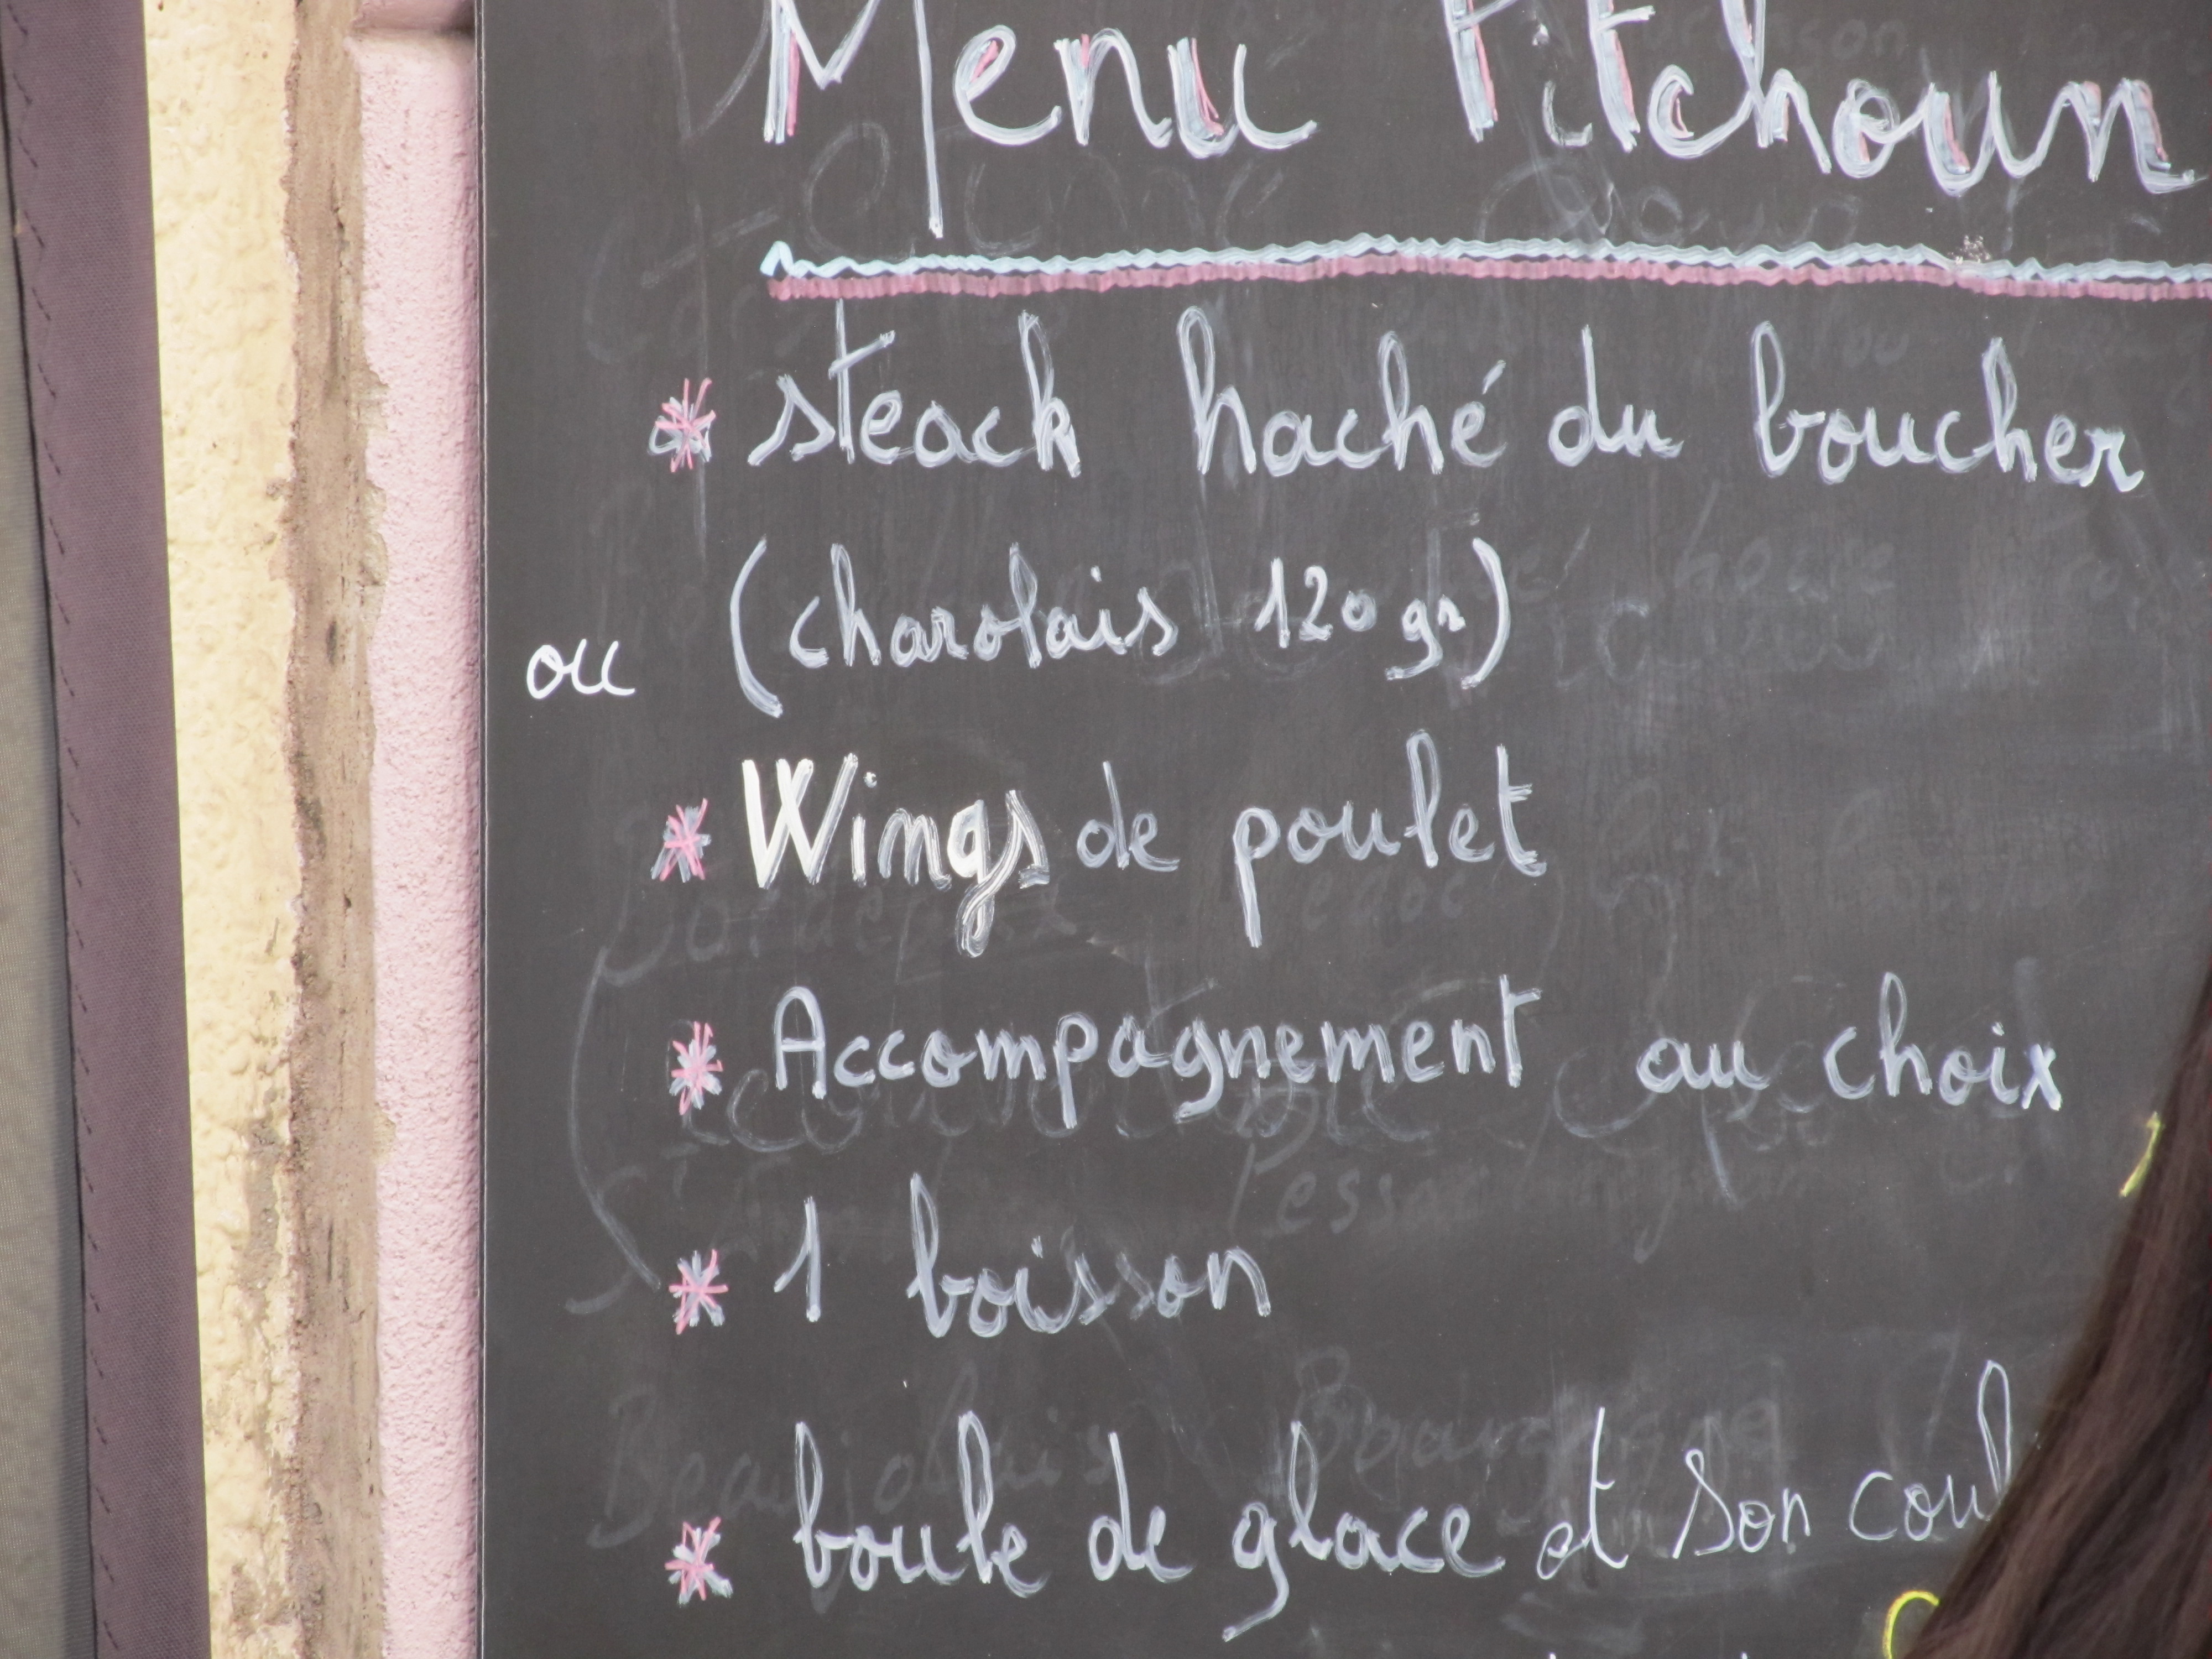 Menu Pitchoun
* steack haché du boucher
(charolais 120 gr)
ou
* Wings de poulet
* Accompagnement au choix
* 1 boisson
* boule de glace et son